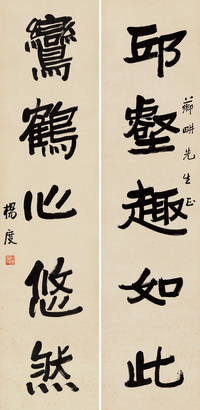 薌畊先生正
邱壑趣如此
鸞鶴心悠然
楊度